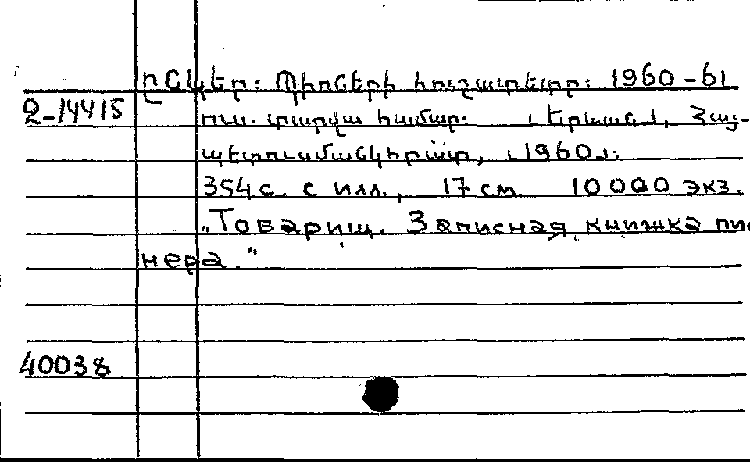 ԸՆԿԵՐ: Պիոների հուշատետր: 1960-61
2-14415
ուս. տարվա համար. [Երևան], Հայ-
պետուսմանկհրատ, [1960]:
354 с. с илл., 17 см 10000 экз.
„Товарищ. Записная книжка пио-
нера."
40038